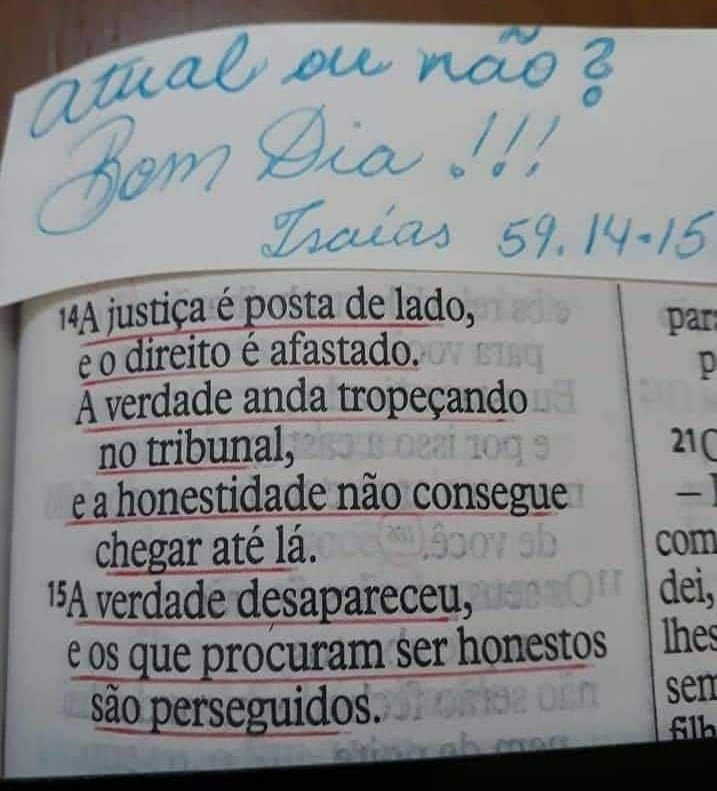 atual ou não?
Bom Dia!!!
Isaías 59.14-15
14A justiça é posta de lado,
e o direito é afastado.
A verdade anda tropeçando
no tribunal,
e a honestidade não consegue
chegar até lá.
15A verdade desapareceu,
e os que procuram ser honestos
são perseguidos.
21
com
dei,
lhes
sem
filh